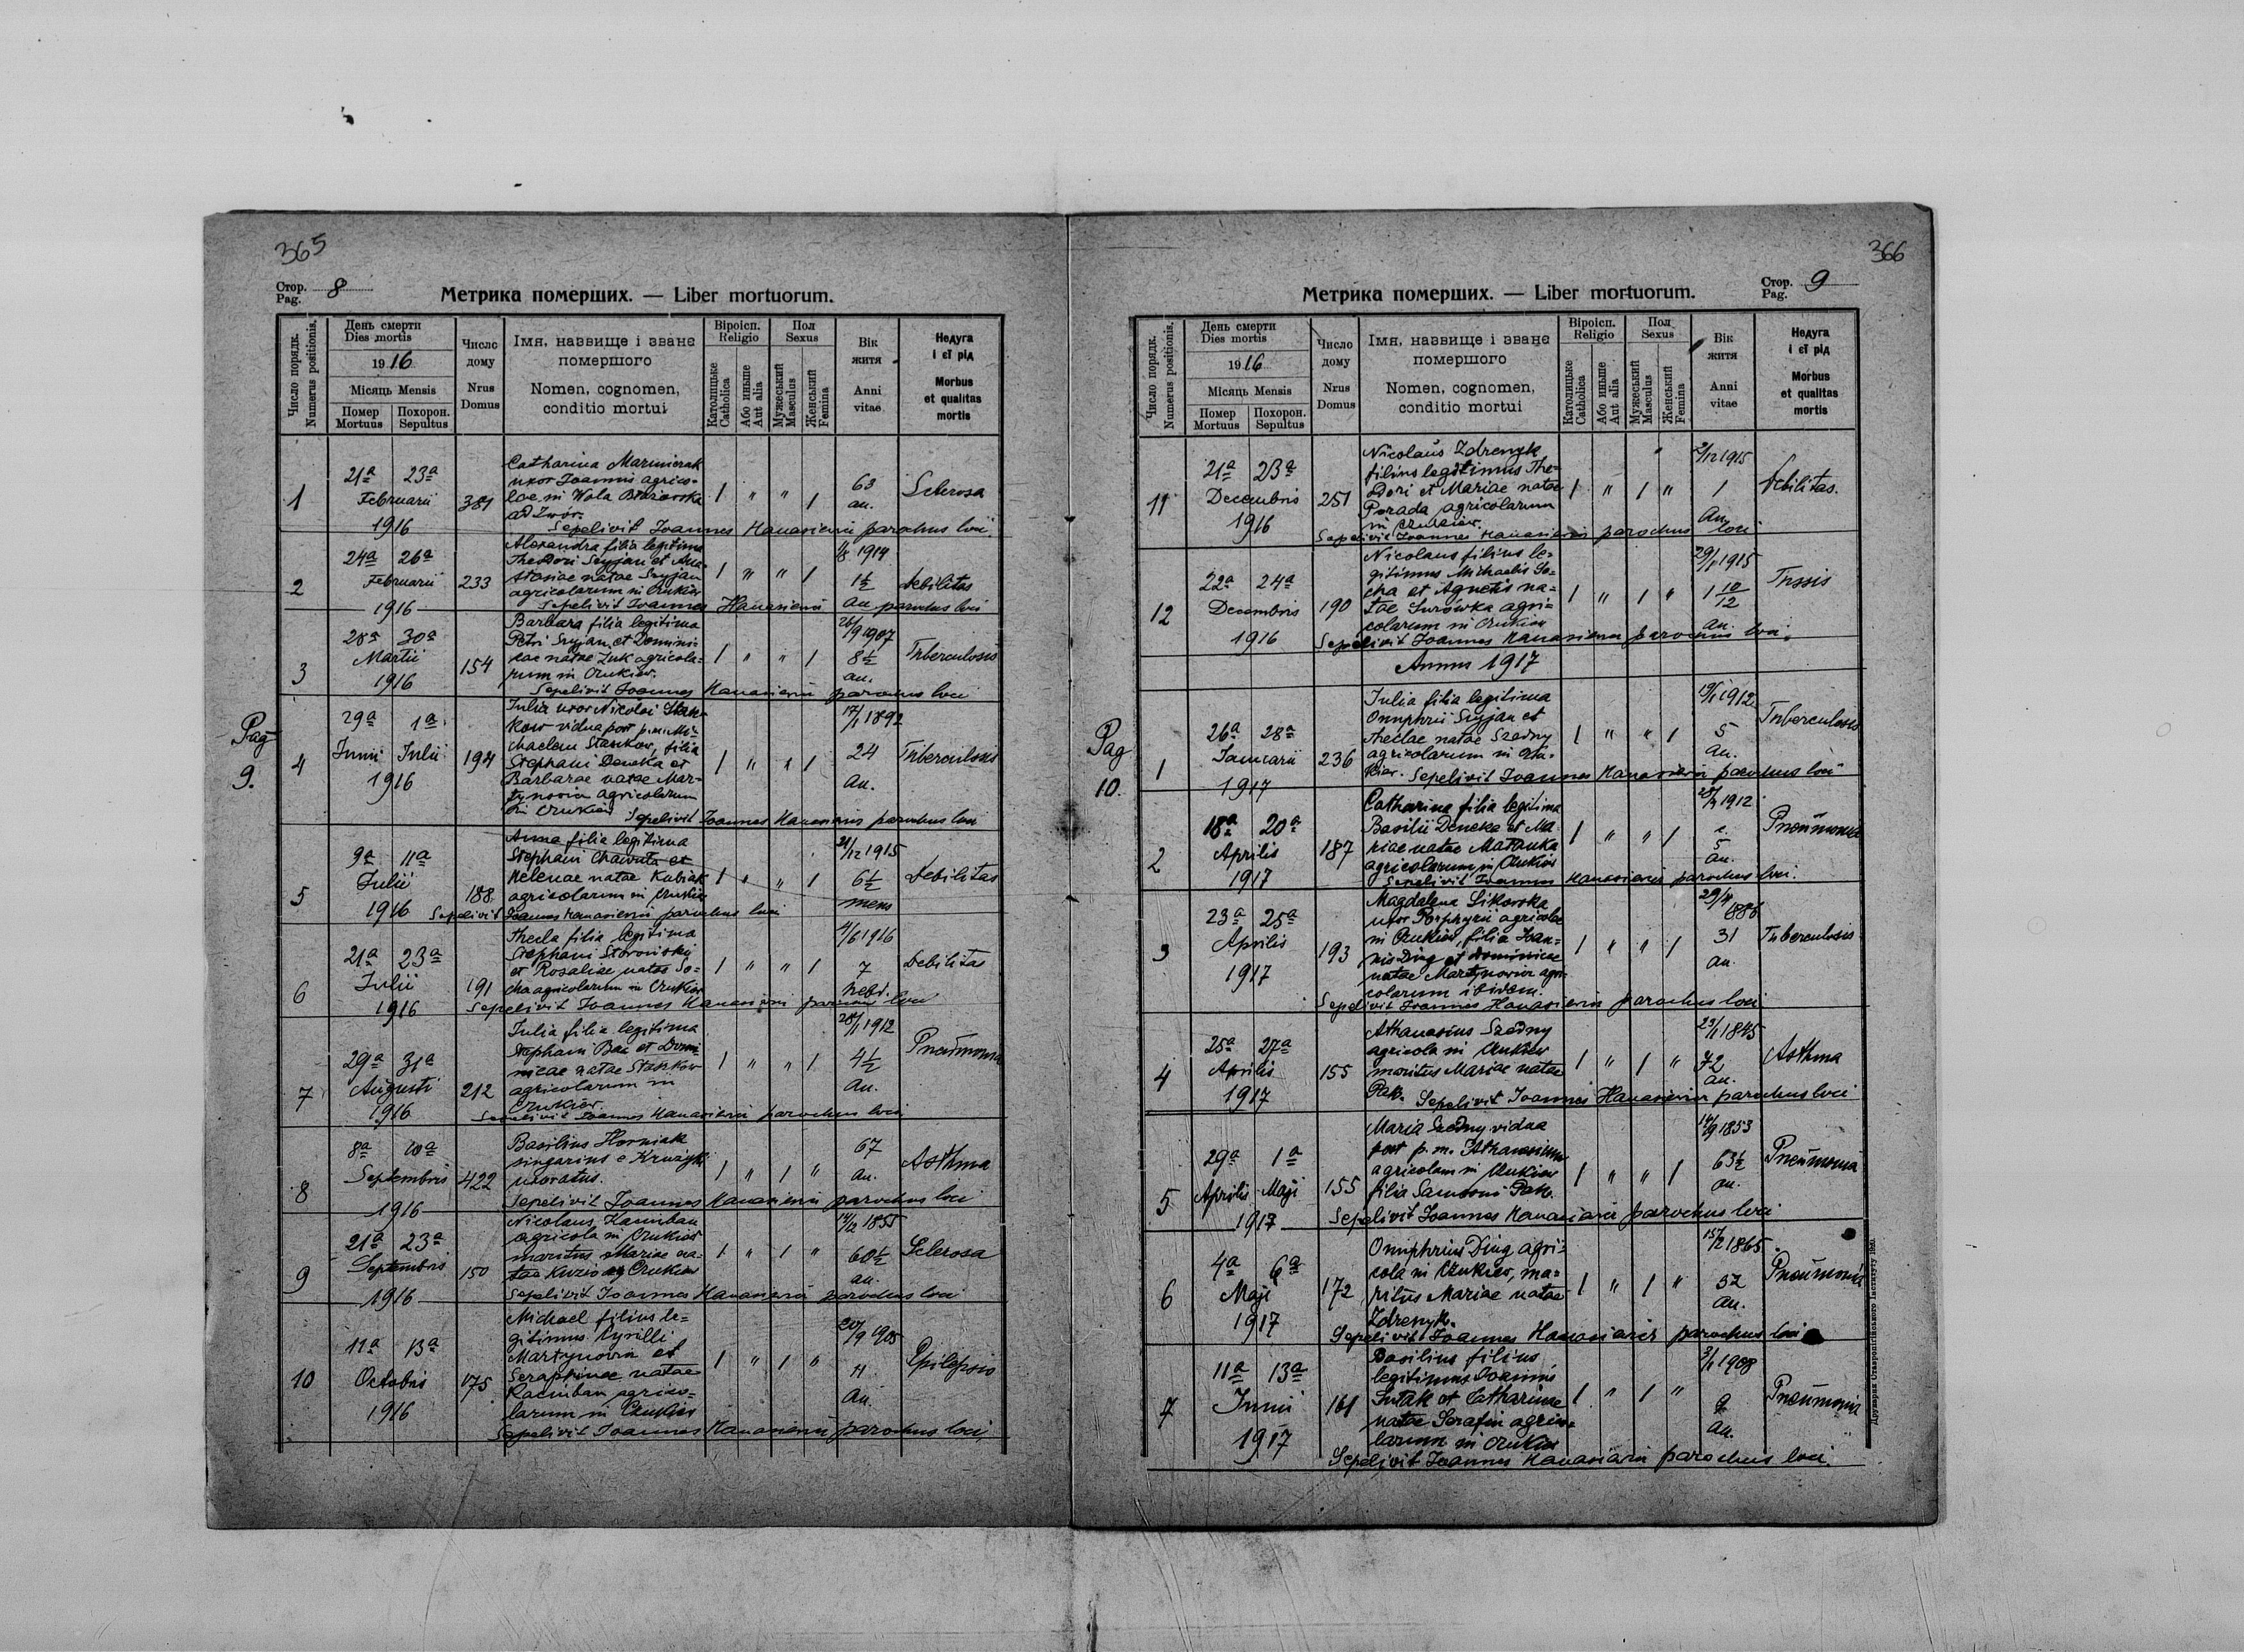 365
Стор. Pag. 8
Метрика померших. — Liber mortuorum.
Число порядк. Numerus positionis.
День смерти Dies mortis
1916
Місяць Mensis
Помер Mortuus
Похорон. Sepultus
Число дому Nrus Domus
Імя, назвище і званє помершого
Nomen, cognomen, conditio mortui
Віроісп. Religio
Католицьке Catholica
Або иньше Aut alia
Пол Sexus
Мужеський Masculus
Женський Femina
Вік житя Anni vitae
Недуга і єї рід
Morbus et qualitas mortis
1
21a 23a
Februarii
1916
381
Catharina
uxor Joannis agrico=
lae in Wola
63
an.
Sclerosa
Sepelivit Joannes parochus loci
2
24a 26a
Februarii
1916
233
Alexandra filia legitima
Theodori Szyjan et Ana=
stasiae natae Szyjan
agricolarum in Czukiew
1914
1½
an
Debilitas
Sepelivit Joannes parochus loci
3
28a 30a
Martii
1916
154
Barbara filia legitima
Petri Szyjan et Domini=
cae natae Żuk agricola=
rum in Czukiew.
26/9 1907
8½
an.
Tuberculosis
Sepelivit Joannes parochus loci
Pag
9.
4
29a 1a
Junii Julii
1916
194
Julia uxor Nicolai
vidua post p.m. Mi=
chaelem Staszkow, filia
Stephani Deneka et
Barbarae natae Mar=
tynowicz agricolarum
in Czukiew
17/1 1892
24
an.
Tuberculosis
Sepelivit Joannes parochus loci
5
9a 11a
Julii
1916
188
Anna filia legitima
Stephani et
Helenae natae Kubiak
agricolarum in Czukiew
21/12 1915
6½
mens
Debilitas
Sepelivit Joannes parochus loci
6
21a 23a
Julii
1916
191
Thecla filia legitima
Stephani
et Rosaliae natae So=
cha agricolarum in Czukiew
4/6 1916
7
hebd.
Debilitas
Sepelivit Joannes parochus loci
7
29a 31a
Augusti
1916
212
Julia filia legitima
Stephani et Domi=
nicae natae Staszkow
agricolarum in
Czukiew
28/1 1912
4½
an.
Pneumonia
Sepelivit Joannes parochus loci
8
8a 10a
Septembris
1916
422
Basilius Horniak
e
uxoratus.
67
an.
Asthma
Sepelivit Joannes parochus loci
9
21a 23a
Septembris
1916
150
Nicolaus Kaniban
agricola in Czukiew
maritus Mariae na=
tae
14/12 1855
60½
an.
Sclerosa
Sepelivit Joannes parochus loci
10
11a 13a
Octobris
1916
175
Michael filius le=
gitimus Cyrilli
Martynowicz et
Seraphinae natae
Kaniban agrico=
larum in Czukiew
20/9 1905
11
an.
Epilepsio
Sepelivit Joannes parochus loci
366
Стор. Pag. 9
Метрика померших. — Liber mortuorum.
Число порядк. Numerus positionis.
День смерти Dies mortis
1916
Місяць Mensis
Помер Mortuus
Похорон. Sepultus
Число дому Nrus Domus
Імя, назвище і званє помершого
Nomen, cognomen, conditio mortui
Віроісп. Religio
Католицьке Catholica
Або иньше Aut alia
Пол Sexus
Мужеський Masculus
Женський Femina
Вік житя Anni vitae
Недуга і єї рід
Morbus et qualitas mortis
11
21a 23a
Decembris
1916
251
Nicolaus Zdrenyk
filius legitimus Theo=
dori et Mariae natae
Porada agricolarum
in Czukiew.
2/12 1915
1
an.
Debilitas.
Sepelivit Joannes parochus loci
12
22a 24a
Decembris
1916
190
Nicolaus filius le=
gitimus Michaelis So=
cha et Agnetis na=
tae Surówka agri=
colarum in Czukiew
29/1 1915
1 10/12
an.
Tussis
Sepelivit Joannes parochus loci
Annus 1917
Pag
10.
1
26a 28a
Januarii
1917
236
Julia filia legitima
Onuphrii Szyjan et
Theclae natae Szedny
agricolarum in Czu=
kiew.
19/1 1912
5
an.
Tuberculosis
Sepelivit Joannes parochus loci
2
18a 20a
Aprilis
1917
187
Catharina filia legitima
Basilii Deneka et Ma=
riae natae
agricolarum in Czukiew
1912
5
an.
Pneumonia
Sepelivit Joannes parochus loci.
3
23a 25a
Aprilis
1917
193
Magdalena Sikorska
uxor Porphyrii agricolae
in Czukiew, filia Joan=
nis Ding et Dominicae
natae Martynowicz agri=
colarum ibidem.
886
31
an.
Tuberculosis
Sepelivit Joannes parochus loci
4
25a 27a
Aprilis
1917
155
Athanasius Szedny
agricola in Czukiew
maritus Mariae natae
Pak.
23/1 1845
72
an.
Asthma
Sepelivit Joannes parochus loci
5
29a 1a
Aprilis Maji
1917
155
Maria Szedny vidua
post p.m. Athanasium
agricolam in Czukiew
filia Samsoni Pak.
14/9 1853
63½
an.
Pneumonia
Sepelivit Joannes parochus loci
6
4a 6a
Maji
1917
172
Onuphrius Ding agri=
cola in Czukiew, ma=
ritus Mariae natae
Zdrenyk.
15/2 1865
52
an.
Pneumonia
Sepelivit Joannes parochus loci
7
11a 13a
Junii
1917
161
Basilius filius
legitimus Joannis
et Catharinae
natae Serafin agrico=
larum in Czukiew
3/1 1908
9
an.
Pneumonia
Sepelivit Joannes parochus loci.
Друкарня Ставропігійського Інституту